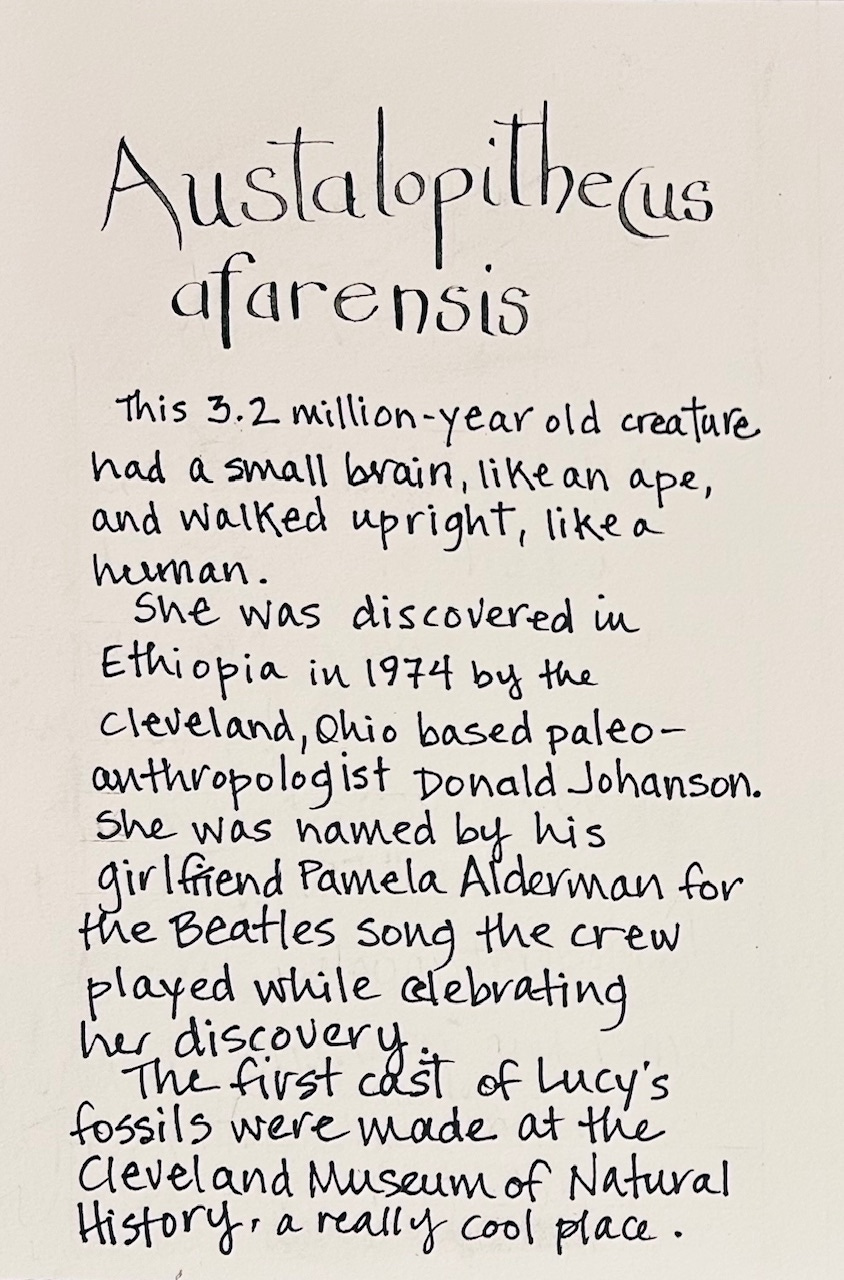 Austalopithecus
afarensis
This 3.2 million-year old creature
had a small brain, like an ape,
and walked upright, like a
human.
She was discovered in
Ethiopia in 1974 by the
Cleveland, Ohio based paleo-
anthropologist Donald Johanson.
She was named by his
girlfriend Pamela Alderman for
the Beatles song the crew
played while celebrating
her discovery.
The first cast of Lucy's
fossils were made at the
Cleveland Museum of Natural
History, a really cool place.